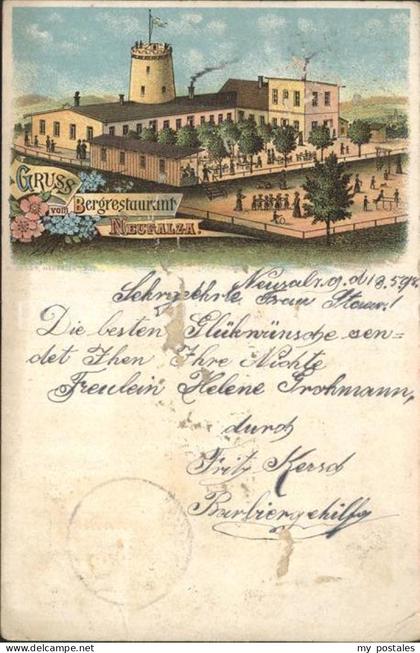 GRUSS
vom Bergrestaurant
NEUSALZA.
Neusalza, d 18.5.98.
Sehrgeehrte Frau !
Die besten Glükwünsche sen-
det Ihen Ihre Nichte
Freulein Helene Grohmann,
durch
Fritz Kersch
Barbiergehilfe
© my postales - www.mypostales.com